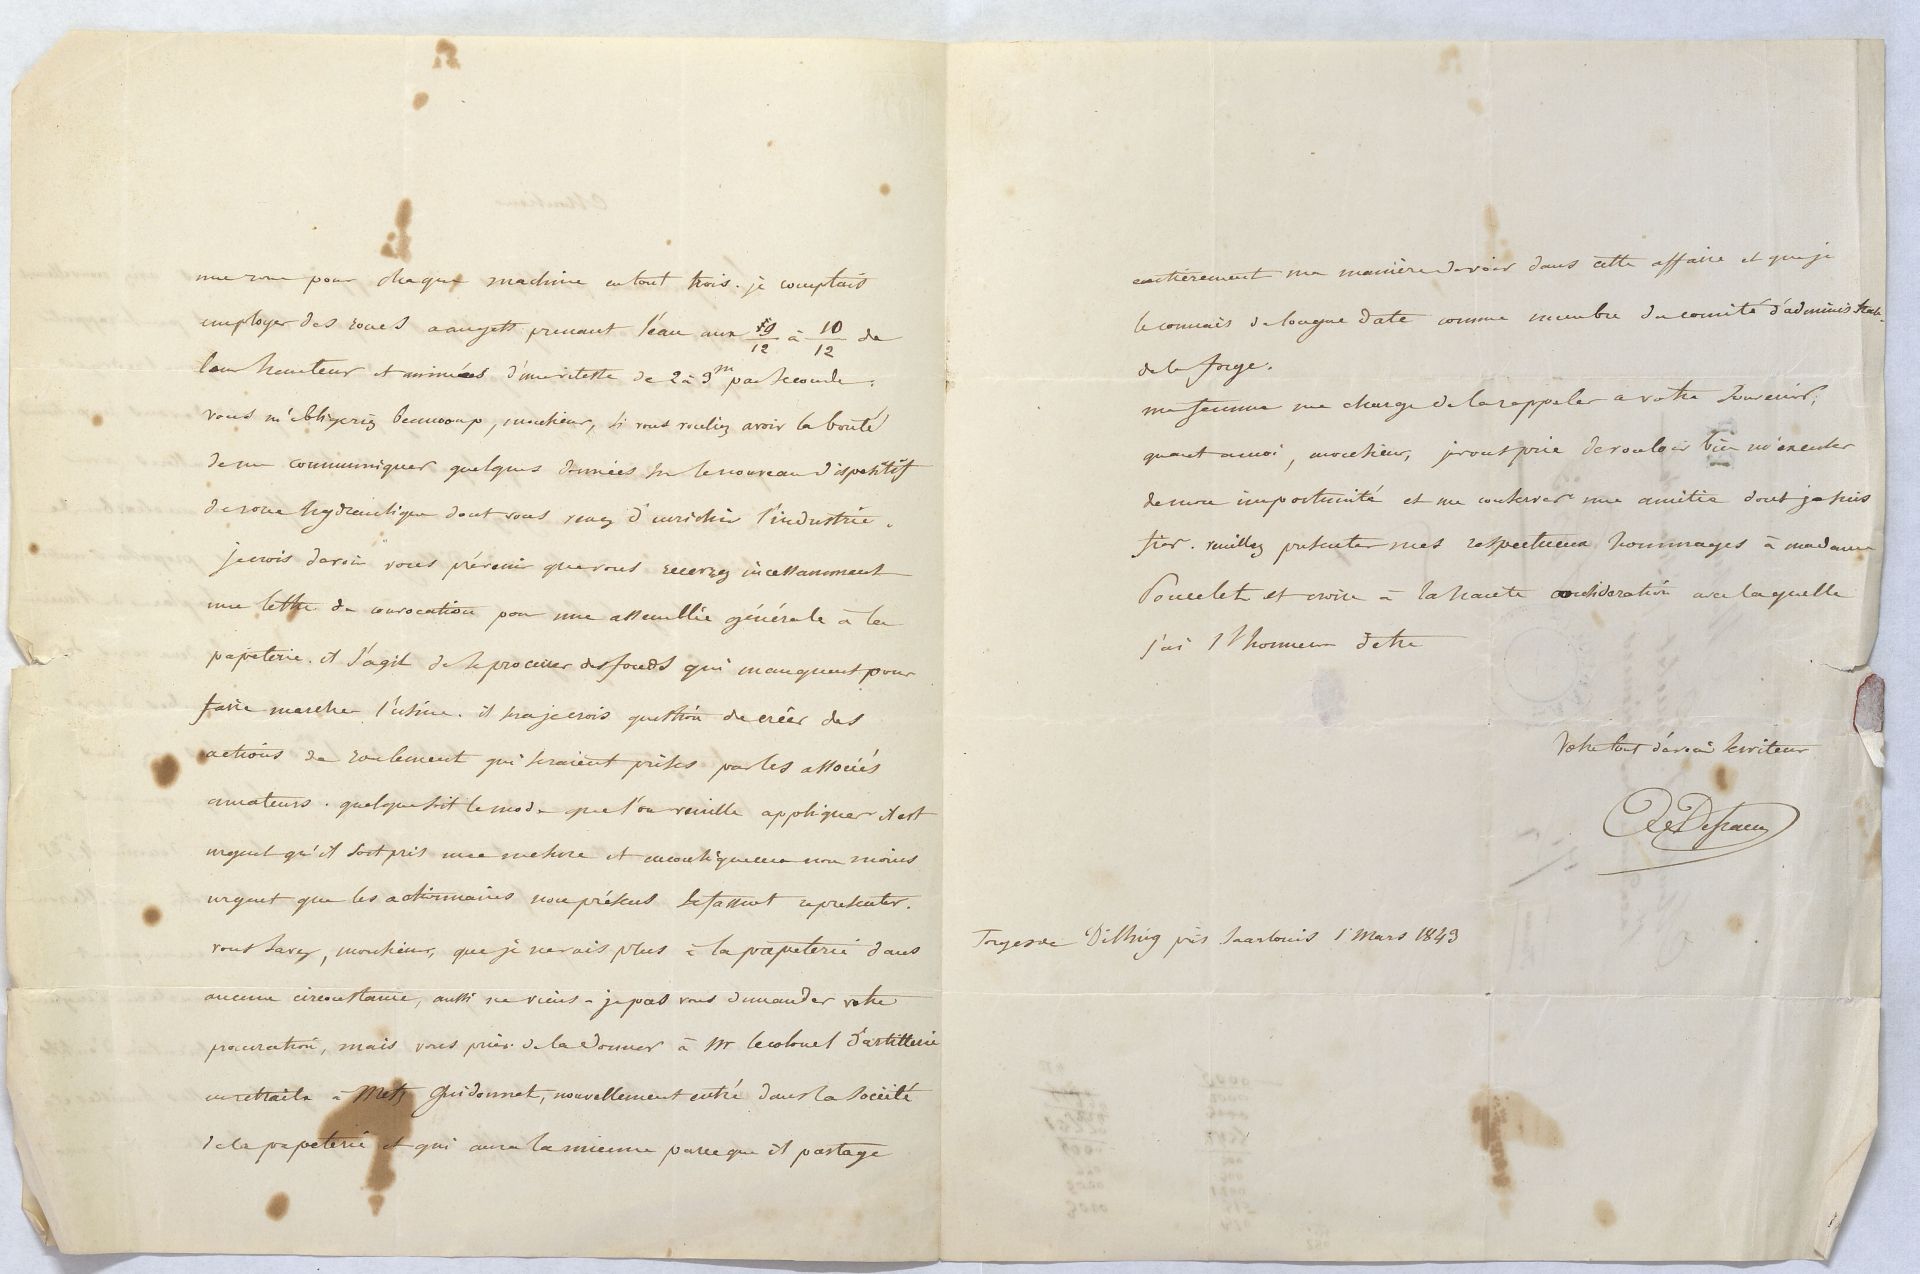 une roue pour chaque machine en tout trois. je comptais
employer des roues a augets prenant l'eau aux 9/12 à 10/12 de
leur hauteur et animées d'une vitesse de 2 à 3m par seconde.
vous m'obligeriez beaucoup, monsieur, si vous vouliez avoir la bonté
de me communiquer quelques données sur le nouveau dispositif
de roue hydraulique dont vous venez d'enrichir l'industrie.
je crois devoir vous prévenir que vous recevrez incessamment
une lettre de convocation pour une assemblée générale à la
papeterie. il s'agit de se procurer des fonds qui manquent pour
faire marcher l'usine. il sera je crois question de créer des
actions de roulement qui seraient prises par les associés
amateurs. quelque soit le mode que l'on veuille appliquer il est
urgent qu'il soit pris une mesure et conséquemment non moins
urgent que les actionnaires non présens se fassent représenter.
vous savez, monsieur, que je ne vais plus à la papeterie dans
aucune circonstance, aussi ne viens-je pas vous demander votre
procuration, mais vous prier de la donner à Mr le colonel d'artillerie
en retraite à Metz Guidonnet, nouvellement entré dans la société
de la papeterie et qui aura la mienne parce que il partage
entièrement ma manière de voir dans cette affaire et que je
le connais de longue date comme membre du comité d'administrat.
de la forge.
ma femme me charge de la rappeler à votre souvenir,
quant a moi, monsieur, je vous prie de vouloir bien m'excuser
de mon importunité et me conserver une amitié dont je suis
fier. veuillez présenter mes respectueux hommages à madame
Poncelet et croire à la haute considération avec laquelle
j'ai l'honneur d'etre
Votre tout dévoué serviteur
Forges de Dilling près Saarlouis 1 Mars 1843